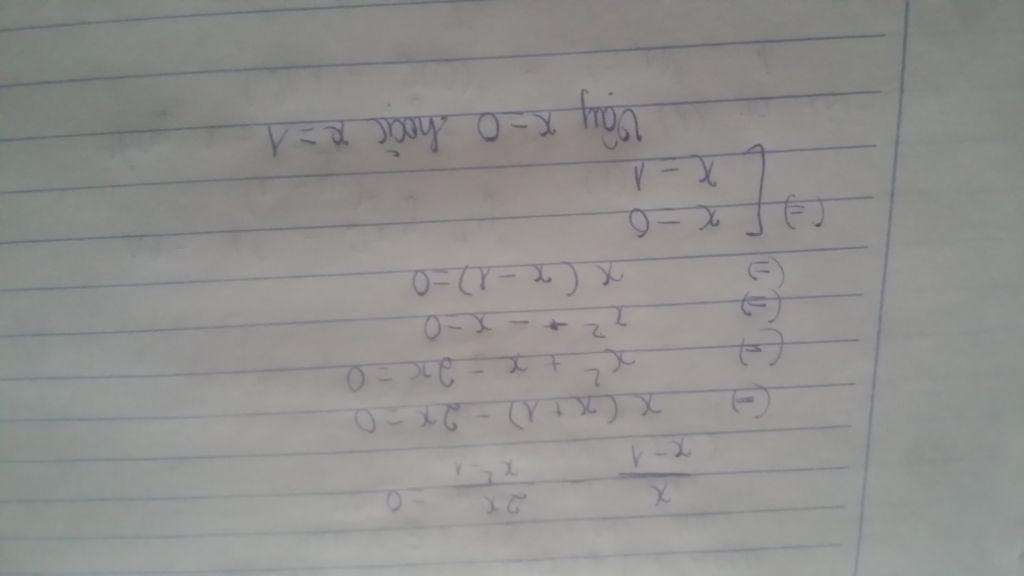 x/(x-1) - 2x/(x²-1) = 0
(=) x(x+1) - 2x = 0
(=) x² + x - 2x = 0
(=) x² - x = 0
(=) x(x-1) = 0
(=) [ x = 0
x = 1
Vậy x = 0 hoặc x = 1